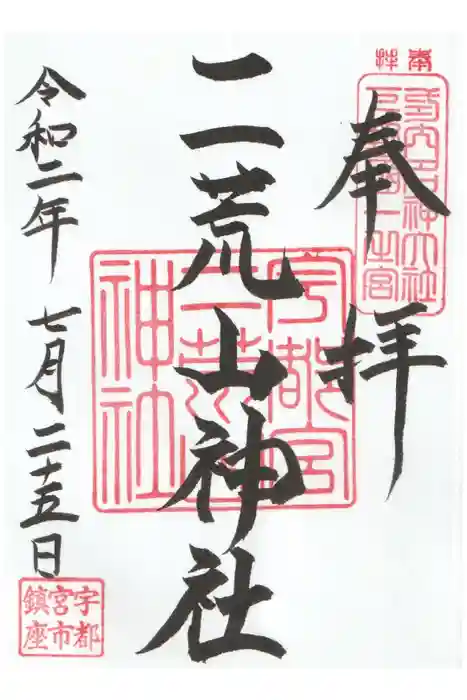 奉拝
奉拝
二荒山神社
宇都宮
二荒山
神社
令和二年 七月二十五日
宇都
宮市
鎮座